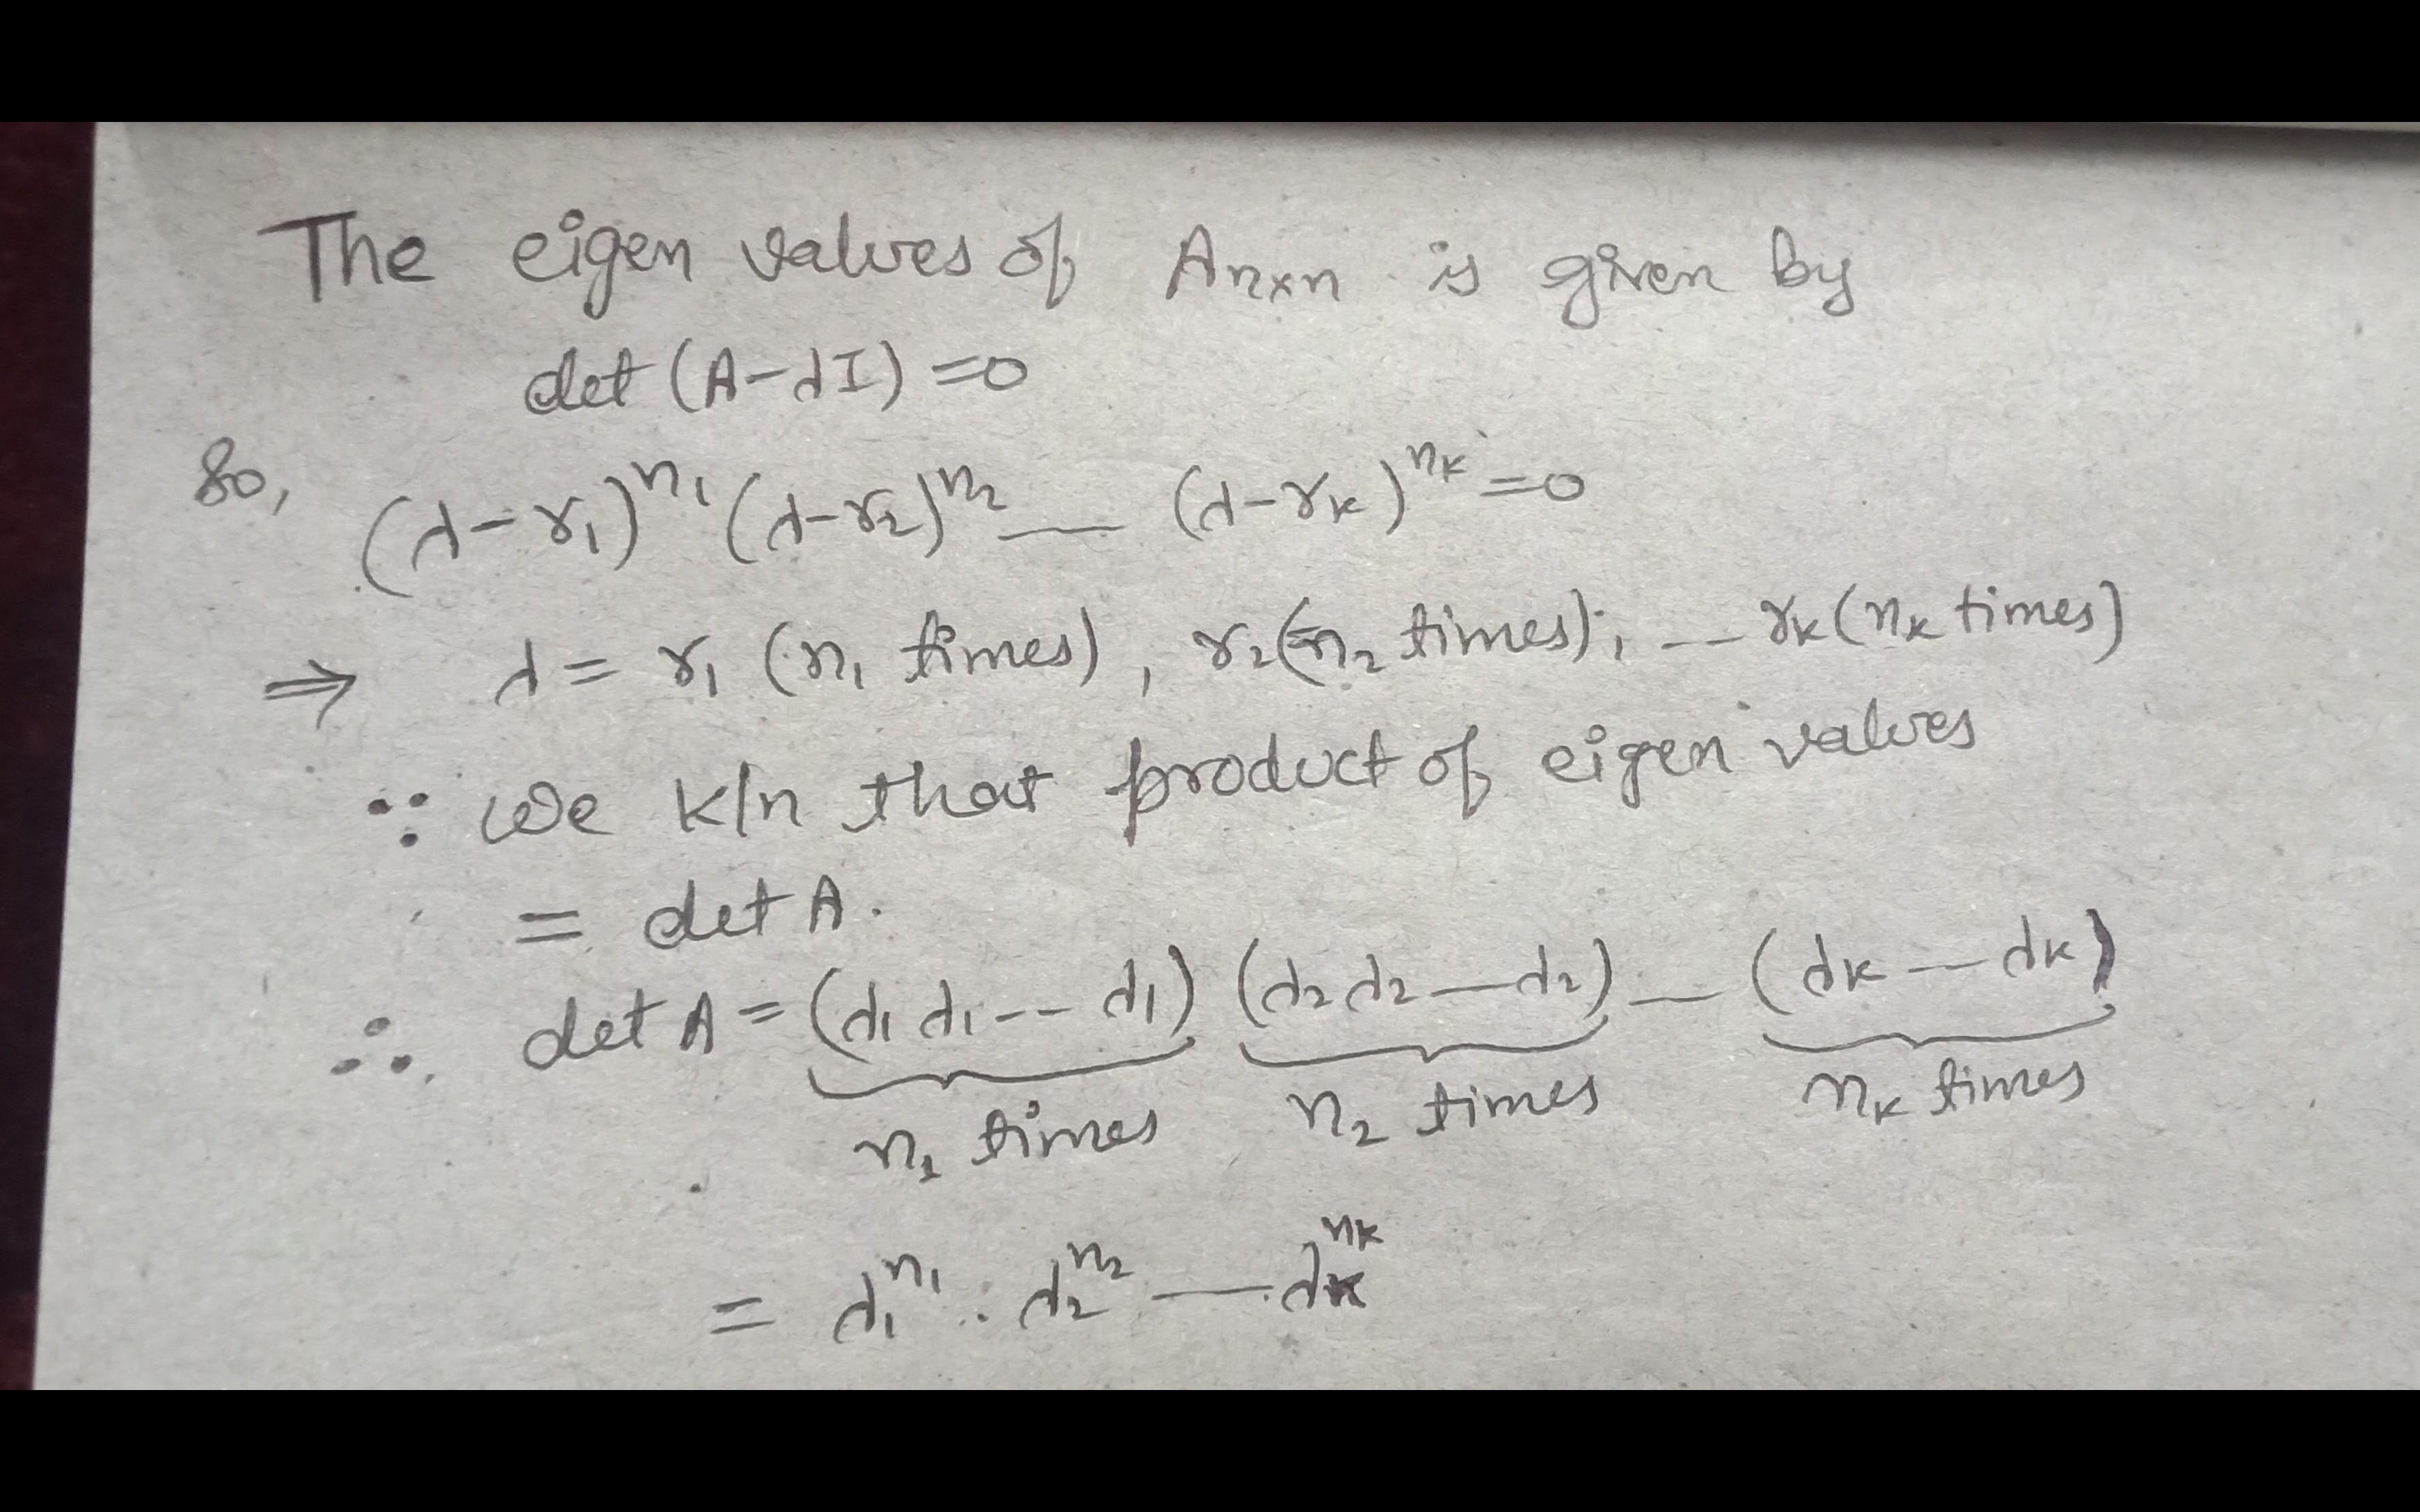 The eigen values of Anxn is given by
det (A-λI) =0
So, (λ-r₁)ⁿ¹ (λ-r₂)ⁿ² — (λ-rₖ)ⁿᵏ =0
⇒ λ = r₁ (n₁ times), r₂ (n₂ times), — rₖ (nₖ times)
∵ we k/n that product of eigen values
= det A.
∴ det A = (λ₁ λ₁ -- λ₁) (λ₂ λ₂ — λ₂) — (λₖ — λₖ)
n₁ times n₂ times nₖ times
= λ₁ⁿ¹ . λ₂ⁿ² — λₖⁿᵏ